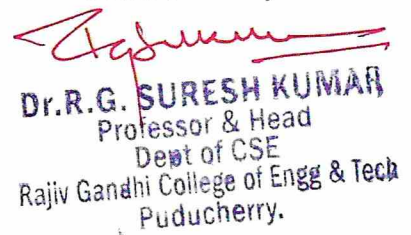 Dr.R.G. SURESH KUMAR
Professor & Head
Dept of CSE
Rajiv Gandhi College of Engg & Tech
Puducherry.